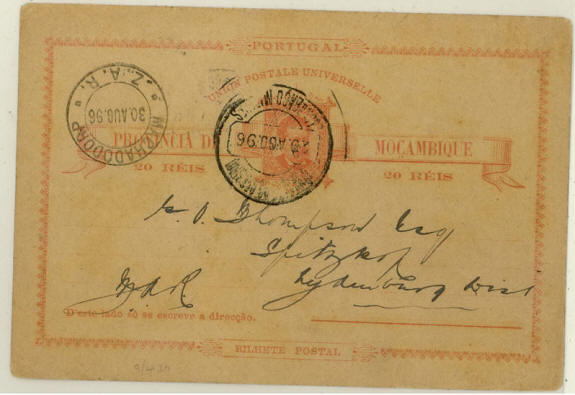 PORTUGAL
UNION POSTALE UNIVERSELLE
Z.A.R.
30.AUG.96
MACHADODORP
29 AGO 96
PROVINCIA DE MOÇAMBIQUE
20 RÉIS 20 RÉIS
Thompson Esq
Spitzkop
Lydenburg Dist
ZAR
D'este lado só se escreve a direcção.
BILHETE POSTAL